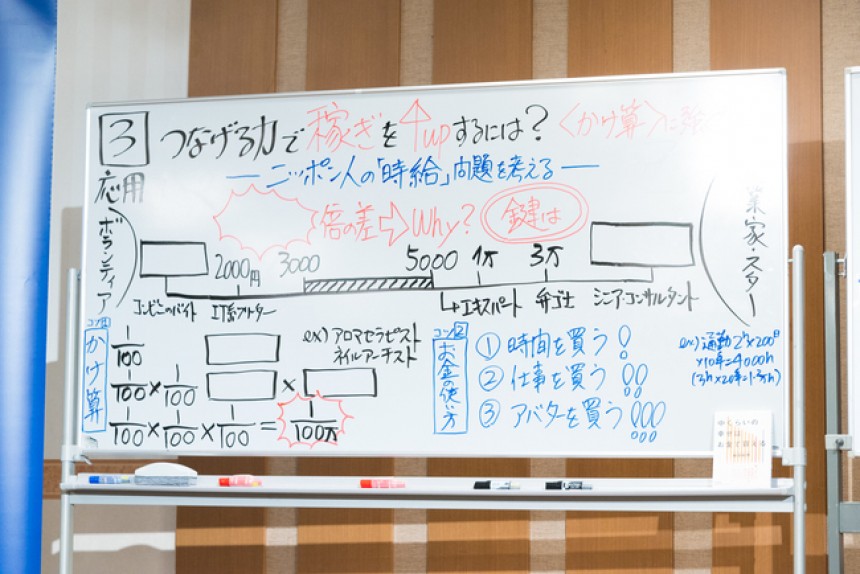 3 つなげる力で稼ぎを↑upするには？〈かけ算〉に
応用
ーニッポン人の「時給」問題を考えるー
倍の差⇨Why? 鍵は
ボランティア
業家・スター
2000円 3000 5000 1万 3万
コンビニのバイト IT系アルバイター エキスパート 弁ゴ士 シニア・コンサルタント
コツ①
かけ算
1/100
1/100×1/100
1/100×1/100×1/100=1/100万
×
ex) アロマセラピスト
ネイルアーチスト
コツ②
お金の使い方
① 時間を買う!
② 仕事を買う!!
③ アバターを買う!!!
ex) 通勤2h×200日
×10年=4000h
(3h×20年=1.2万h)
中くらいの
幸せは
お金で買える